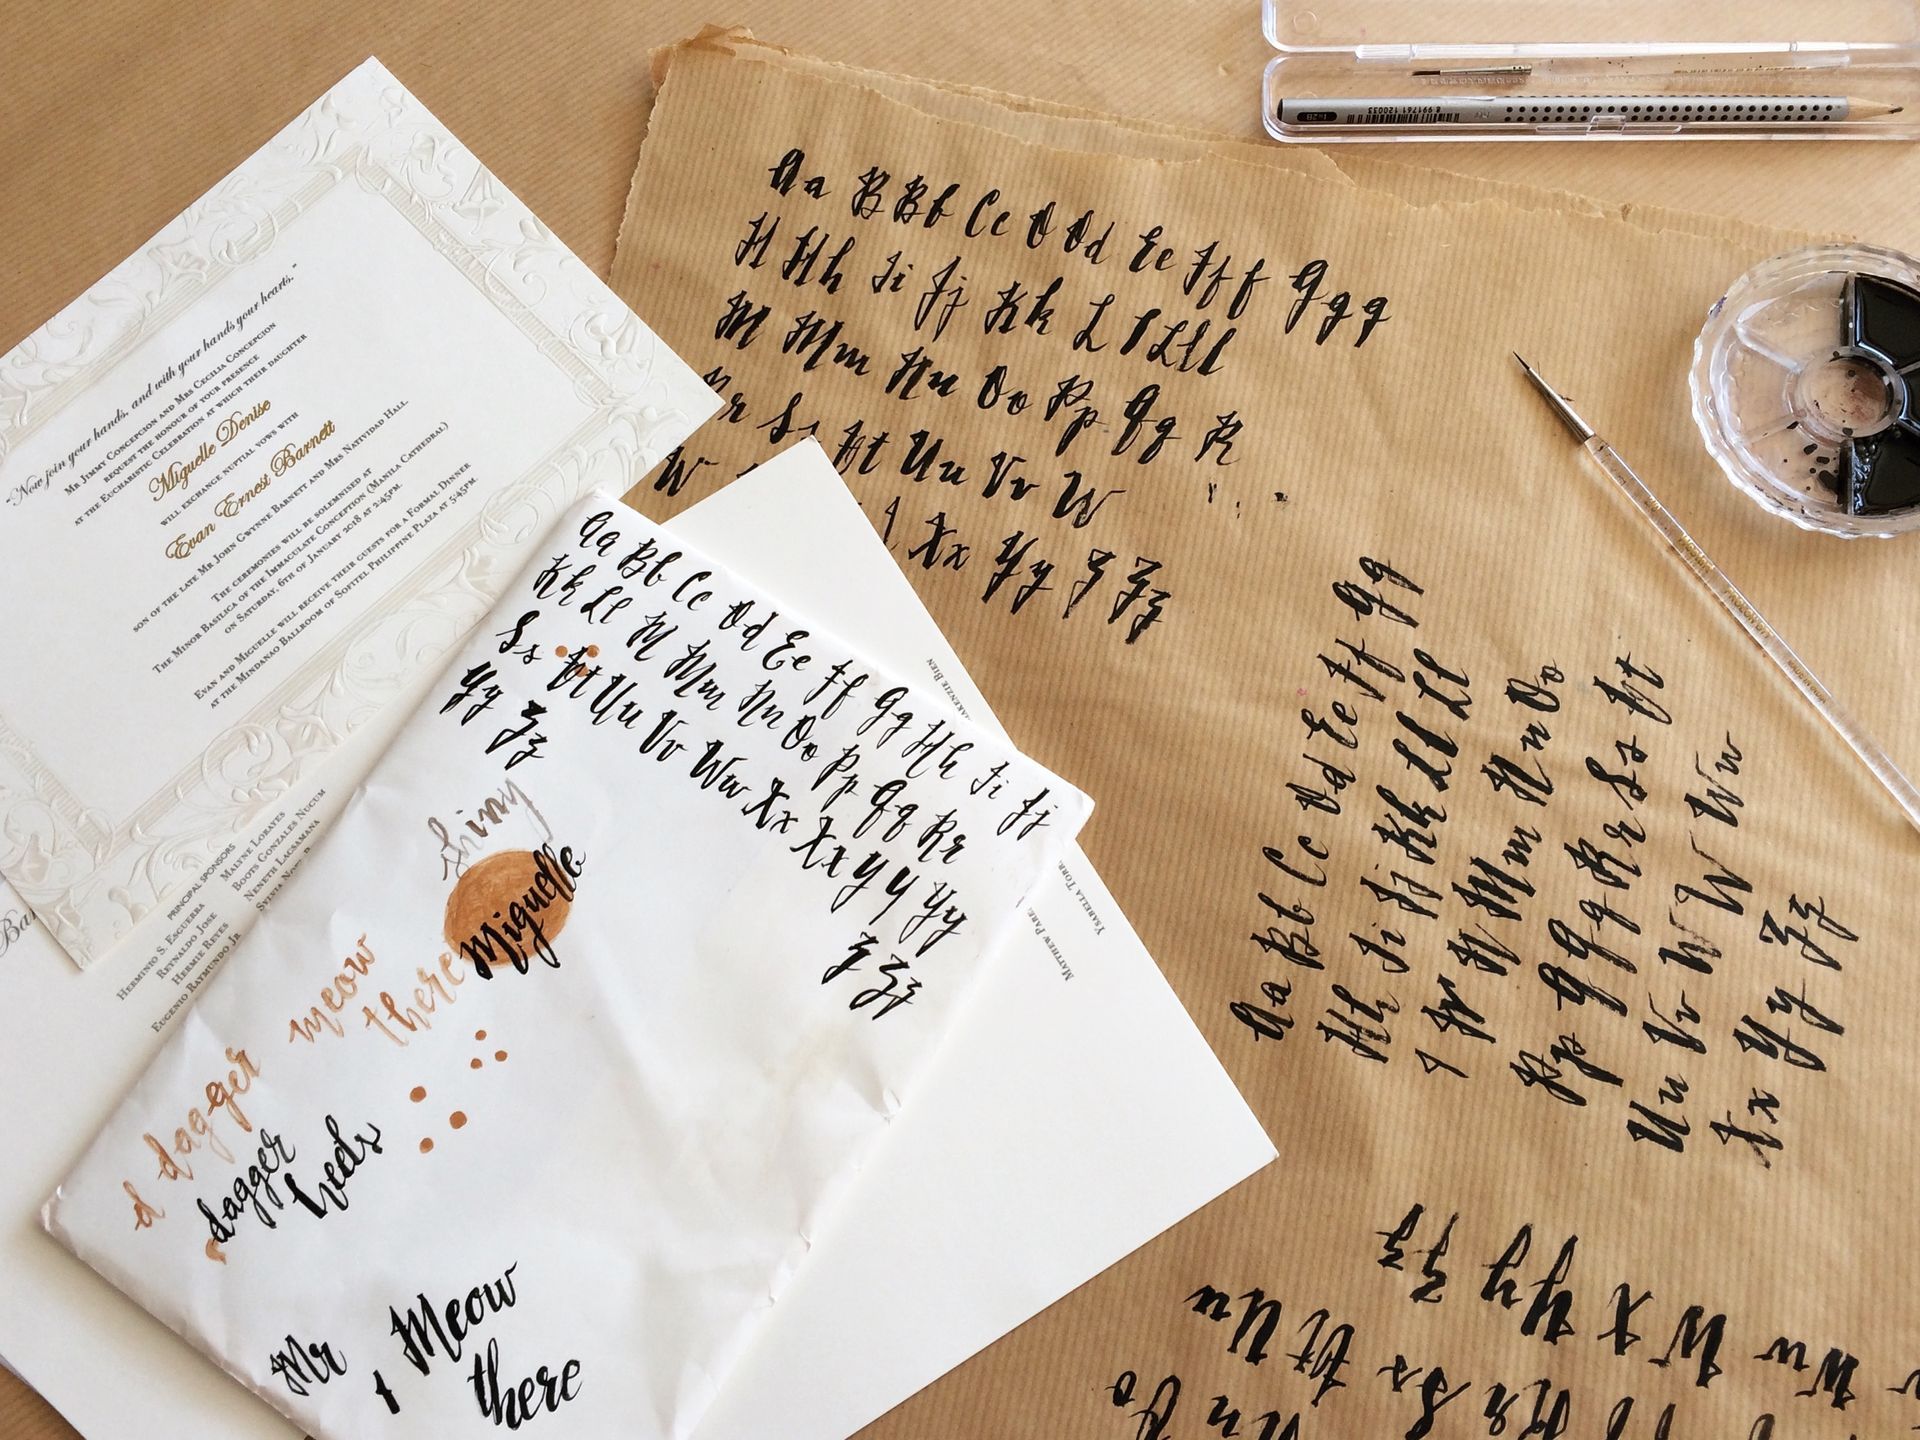 "Now join your hands, and with your hands your hearts."
Mr Jimmy Concepcion and Mrs Cecilia Concepcion
request the honour of your presence
at the Eucharistic Celebration at which their daughter
Miguelle Denise
will exchange nuptial vows with
Evan Ernest Barnett
son of the late Mr John Gwynne Barnett and Mrs Natividad Hall
The ceremonies will be solemnised at
The Minor Basilica of the Immaculate Conception (Manila Cathedral)
on Saturday, 6th of January 2018 at 2:45pm.
Evan and Miguelle will receive their guests for a Formal Dinner
at the Mindanao Ballroom of Sofitel Philippine Plaza at 5:45pm
Principal Sponsors
Herminio S. Esguerra
Reynaldo Jose
Hermie Reyes
Eugenio Raymundo Jr
Malyne Lorayes
Boots Gonzales Nucum
Neneth Lacsamana
Matthew
Ysabella
Aa Bb Cc Dd Ee Ff Gg Hh Ii Jj
Kk Ll M Mm Nn Oo Pp Qq Rr
Ss Tt Uu Vv Ww Xx Xx Y y Yy
Yy Zz Z Zz
shiny
Miguelle
meow
there
d dagger
dagger
heels
Mr
Meow
there
Aa B Bb Cc D Dd Ee Ff f Gg g
H Hh Ii Jj Kk L l Lll
M Mm Nn Oo Pp Qq R
Rr Ss Tt Uu Vv W
W Xx Yy Z Zz
Aa Bb Cc Dd Ee Ff Gg
Hh Ii Jj Kk Ll Ll
M Mm N n Oo
Pp Q Qq Rr Ss Tt
Uu Vv W W Ww
Xx Yy Zz
Zz
Uu Tt Ss
8 991761 120033
1=2B